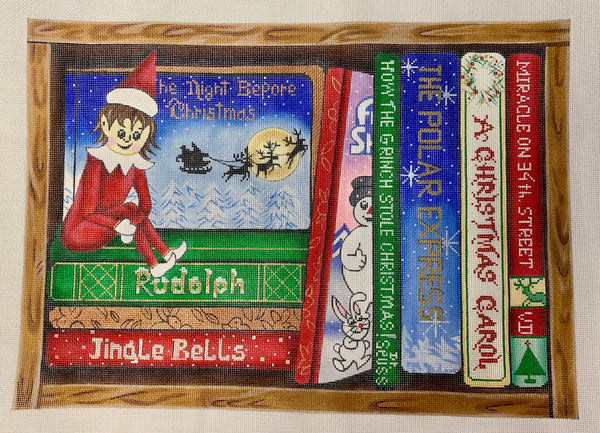 The Night Before
Christmas
Rudolph
Jingle Bells
HOW THE GRINCH STOLE CHRISTMAS! Dr. SEUSS
THE POLAR EXPRESS
A CHRISTMAS CAROL
MIRACLE ON 34th. STREET
VD